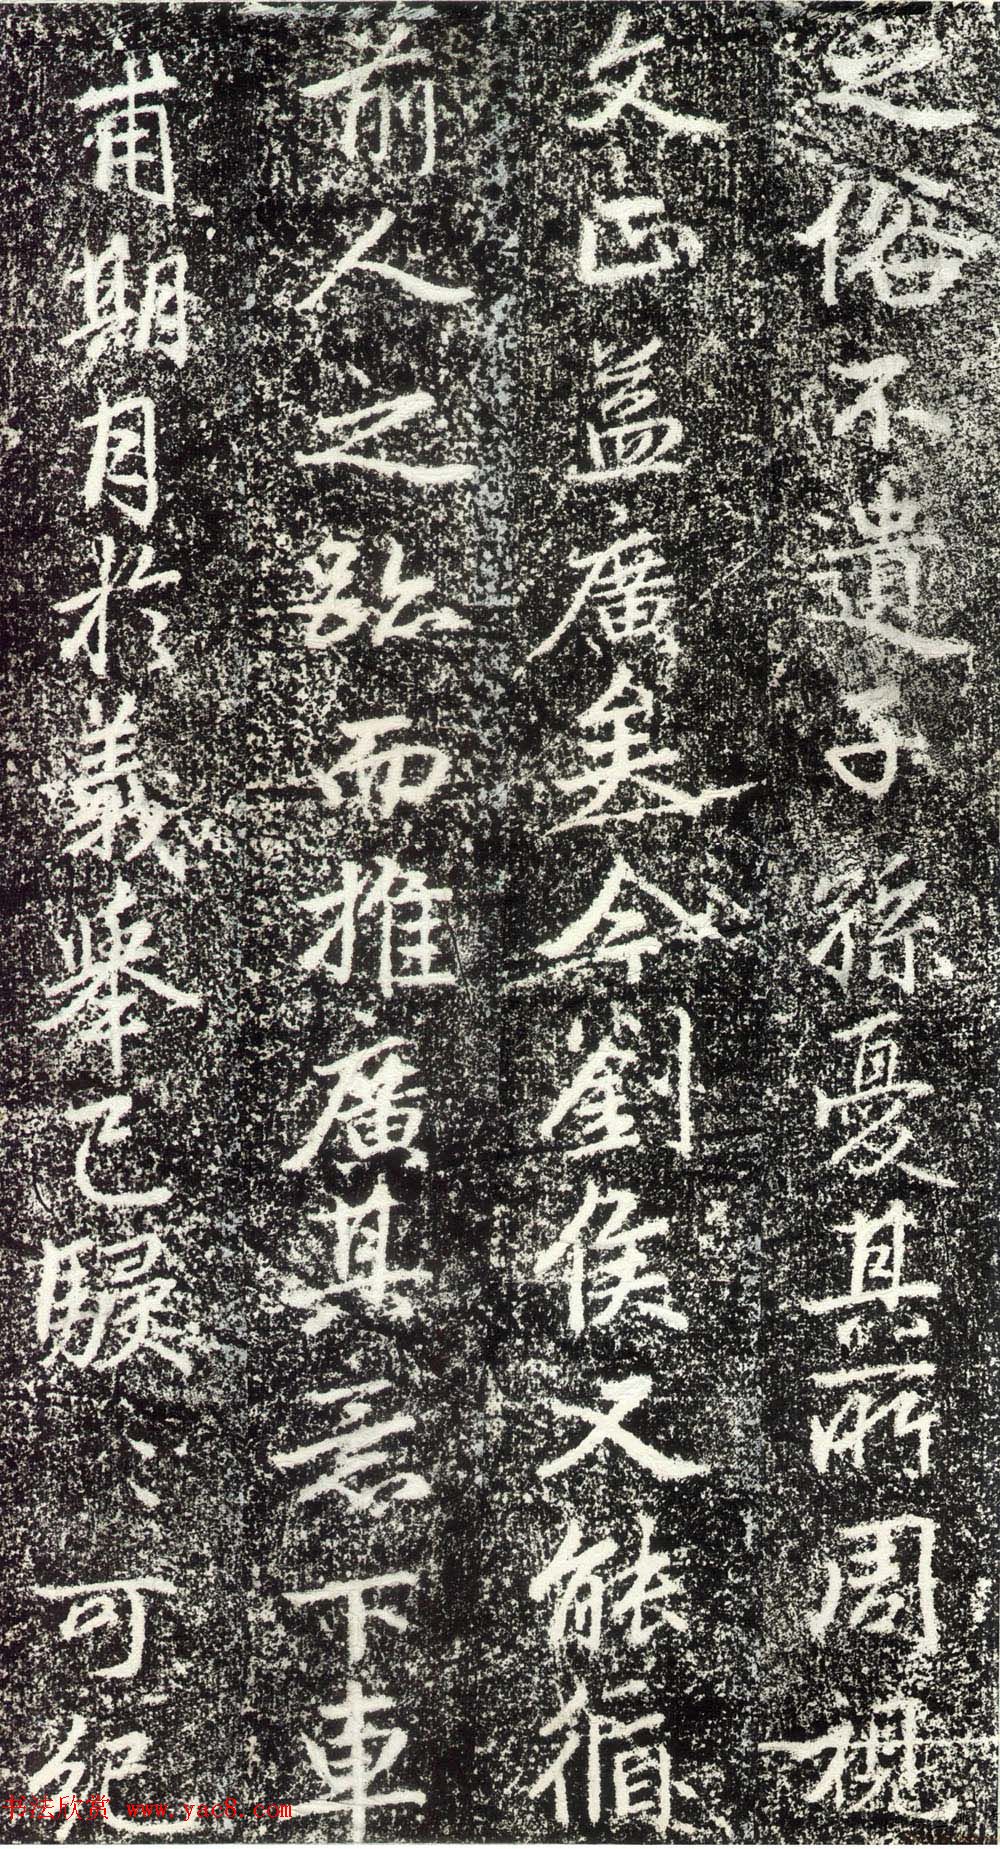 之俗不遗子孫憂其所周視
文正益廣矣今劉侯又能循
前人之跡而推廣其意下車
甫期月於義舉已驟〻可紀
书法欣赏 www.yac8.com